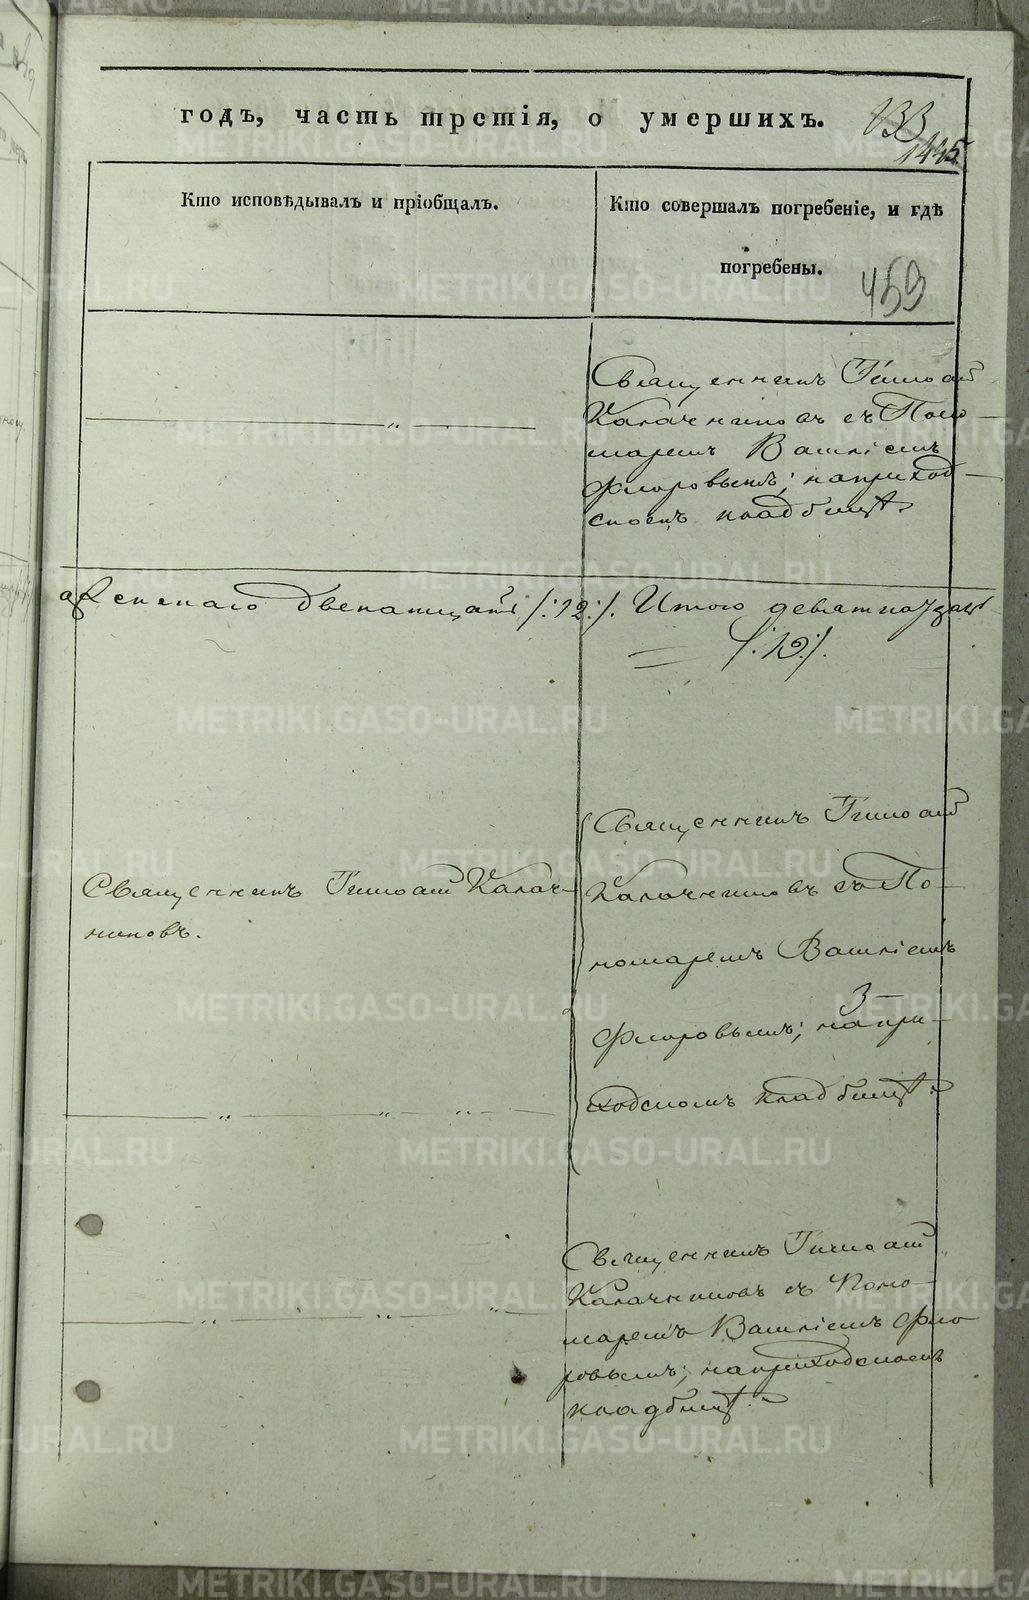 годъ, часть третія, о умершихъ.
133
1445
Кто исповѣдывалъ и пріобщалъ.
Кто совершалъ погребеніе, и гдѣ
погребены.
459
Священникъ
Калачниковъ съ Поно-
маремъ Василіемъ
Флоровымъ; на приход-
скомъ кладбищѣ.
женскаго двенатцать /:12:/. Итого девятнадцать
/:19:/.
Священникъ
Калачниковъ съ По-
номаремъ Василіемъ
3
Флоровымъ; на при-
ходскомъ кладбищѣ.
Священникъ Калач-
никовъ.
Священникъ
Калачниковъ съ Поно-
маремъ Василіемъ Фло
ровымъ; на приходскомъ
кладбищѣ.
METRIKI.GASO-URAL.RU